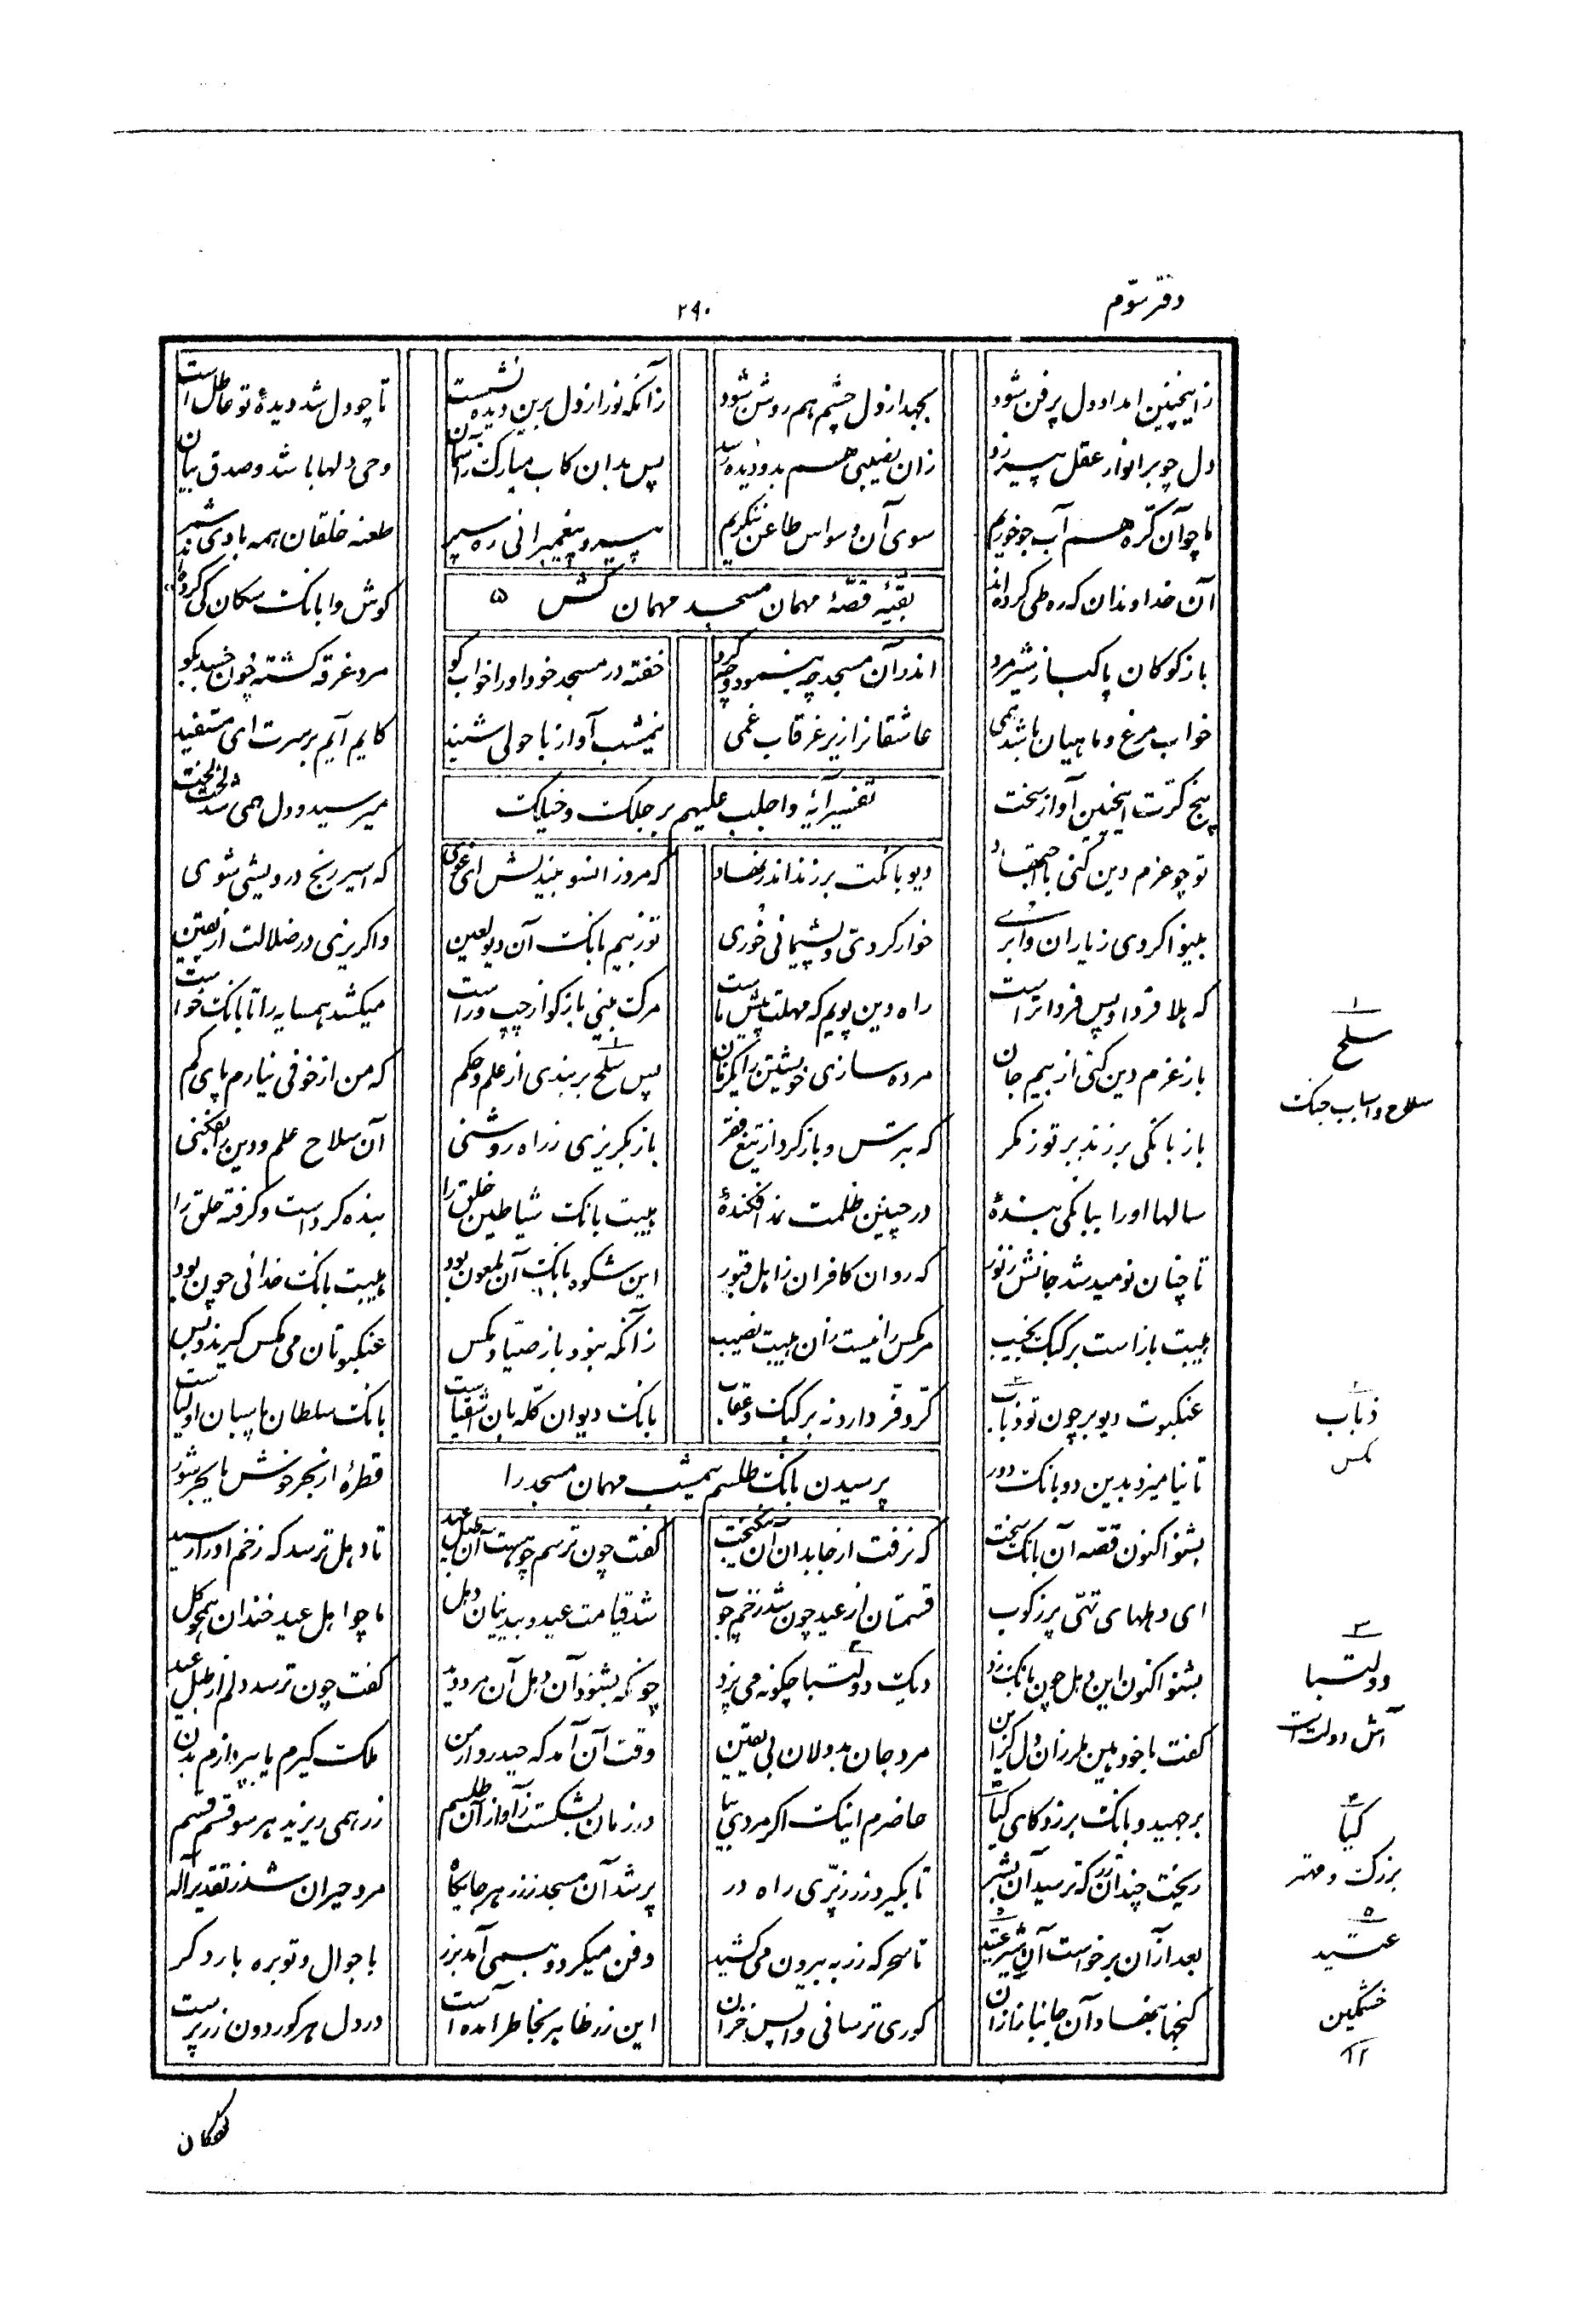 دفتر سوّم
۲۹۰
زاینچنین امداد دل پر فن شود	بجهد از دل چشم هم روشن شود	زآنکه نور از دل برین دیده نشست	تا چو دل شد دیدهٔ تو عاطل است
دل چو بر انوار عقل پیر زد	زان نصیبی هم بدو دیده رسد	پس بدان کاب مبارک ز آسمان	وحی دلها باشد و صدق بیان
ما چو آن کرّه هم آب جو خوریم	سوی آن وسواس طاعن ننگریم	پیرو پیغمبرانی ره سپر	طعنه خلقان همه بادی شمر
آن خداوندان که ره طی کرده‌اند	گوش وا بانگ سگان کی کرده‌اند
بقیّهٔ قصّهٔ مهمان مسجد مهمان کش ۵
باز گو کان پاکباز شیرمرد	اندر آن مسجد چه بنمود و چه کرد	خفته در مسجد خود او را خواب کو	مرد غرقه گشته چون خسپد بگو
خواب مرغ و ماهیان باشد همی	عاشقانرا زیر غرقاب غمی	نیمشب آواز با هولی شنید	کایم آیم بر سرت ای مستفید
پنج کرّت اینچنین آواز سخت	میرسید و دل همی شد لخت لخت
تفسیر آیهٔ واجلب علیهم بخیلک و رجلک
تو چو عزم دین کنی با اجتهاد	دیو بانگت برزند اندر نهاد	که مرو زانسو بیندیش ای غوی	که اسیر رنج درویشی شوی
بینوا گردی ز یاران وابری	خوار گردی و پشیمانی خوری	تو ز بیم بانگ آن دیو لعین	واگریزی در ضلالت از یقین
که هلا فردا و پس فردا تراست	راه دین پویم که مهلت پیش ماست	مرگ بینی باز کو از چپ و راست	میکشد همسایه را تا بانگ خاست
باز عزم دین کنی از بیم جان	مرده سازی خویشتن را یکزمان	پس سلح بربندی از علم و حکم	که من از خوفی نیارم پای کم
باز بانگی برزند بر تو ز مکر	که بترس و باز گرد از تیغ فقر	باز بگریزی ز راه روشنی	آن سلاح علم و دین را بفکنی
سالها او را ببانگی بندهٔ	در چنین ظلمت نمد افکندهٔ	هیبت بانگ شیاطین خلق را	بنده کرد است و گرفته حلق را
تا چنان نومید شد جانش ز نور	که روان کافران ز اهل قبور	این شکوه بانگ آن ملعون بود	هیبت بانگ خدائی چون بود
هیبت باز است بر کبک نجیب	مر مگس را نیست زان هیبت نصیب	زآنکه نبود باز صیّاد مگس	عنکبوتان می مگس گیرند و بس
عنکبوت دیو بر چون تو ذباب	کرّ و فرّ دارد نه بر کبک و عقاب	بانگ دیوان گله‌بان اشقیاست	بانگ سلطان پاسبان اولیاست
تا نیامیزد بدین دو بانگ دور	قطرهٔ از بحر خوش با بحر شور
پرسیدن بانگ طلسم نیمشب مهمان مسجد را
بشنو اکنون قصّه آن بانگ سخت	که نرفت از جا بدان آن نیکبخت	گفت چون ترسم چو هست آن طبل عید	تا دهل ترسد که زخم او را رسید
ای دهلهای تهی پر ز کوب	قسمتان از عید چون شد زخم چوب	شد قیامت عید و بیدینان دهل	ما چو اهل عید خندان همچو گل
بشنو اکنون این دهل چون بانگ زد	دیگ دولتبا چگونه می پزد	چونکه بشنود آن دهل آن مرد دید	گفت چون ترسد دلم از طبل عید
گفت با خود هین ملرزان دل کزین	مرد جان بددلان بی یقین	وقت آن آمد که حیدروار من	ملک گیرم یا بپردازم بدن
برجهید و بانگ برزد کای کیا	حاضرم اینک اگر مردی بیا	در زمان بشکست ز آواز آن طلسم	زر همی ریزید هر سو قسم قسم
ریخت چندان زر که ترسید آن پسر	تا بگیرد زر ز پرّی راه در	پر شد آن مسجد ز زر هر جایگاه	مرد حیران شد ز تقدیر آله
بعد از آن برخاست آن شیر عتید	تا سحرگه زر به بیرون می کشید	دفن میکرد و همی آمد بزر	با جوال و توبره بار دگر
گنجها بنهاد آن جانباز از آن	کوری ترسانی واپس خزان	این زر ظاهر بخاطر آمده است	در دل هر کور دون زر پرست
۱
سلح
سلاح و اسباب جنگ
۲
ذباب
مگس
۳
دولتبا
آش دولت است
۴
کیا
بزرگ و مهتر
۵
عتید
خشمگین
۱۲
کودکان